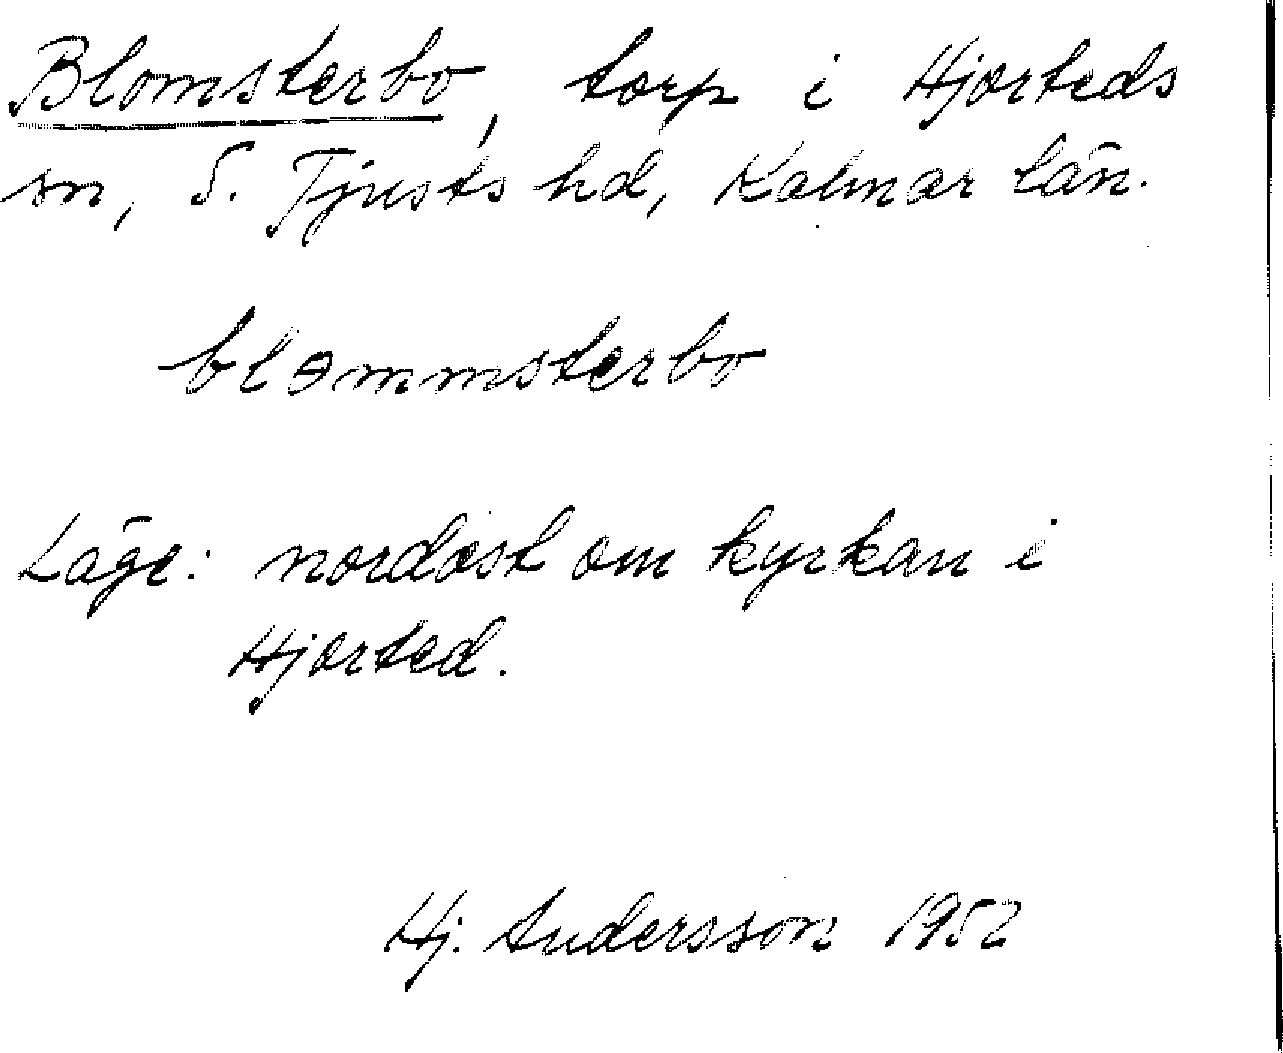 Blomsterbo, torp i Hjorteds
sn, S. Tjusts hd, Kalmar län.
bləmmsterbo
Läge: nordost om kyrkan i
Hjorted.
Hj. Andersson 1952